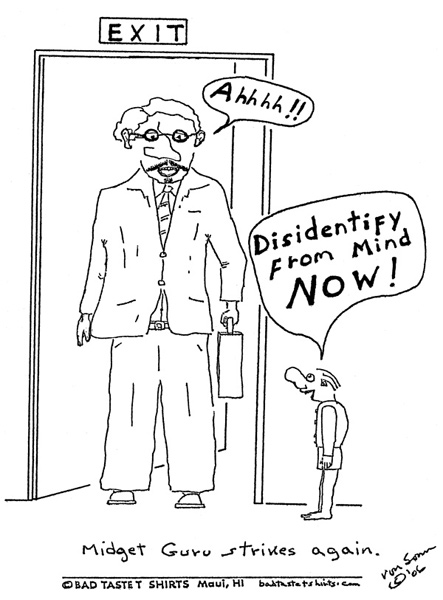 EXIT
Ahhhh!!
Disidentify
From Mind
NOW!
Midget Guru strikes again.
ron Sonn
'06
© BAD TASTE T SHIRTS Maui, HI badtastetshirts.com